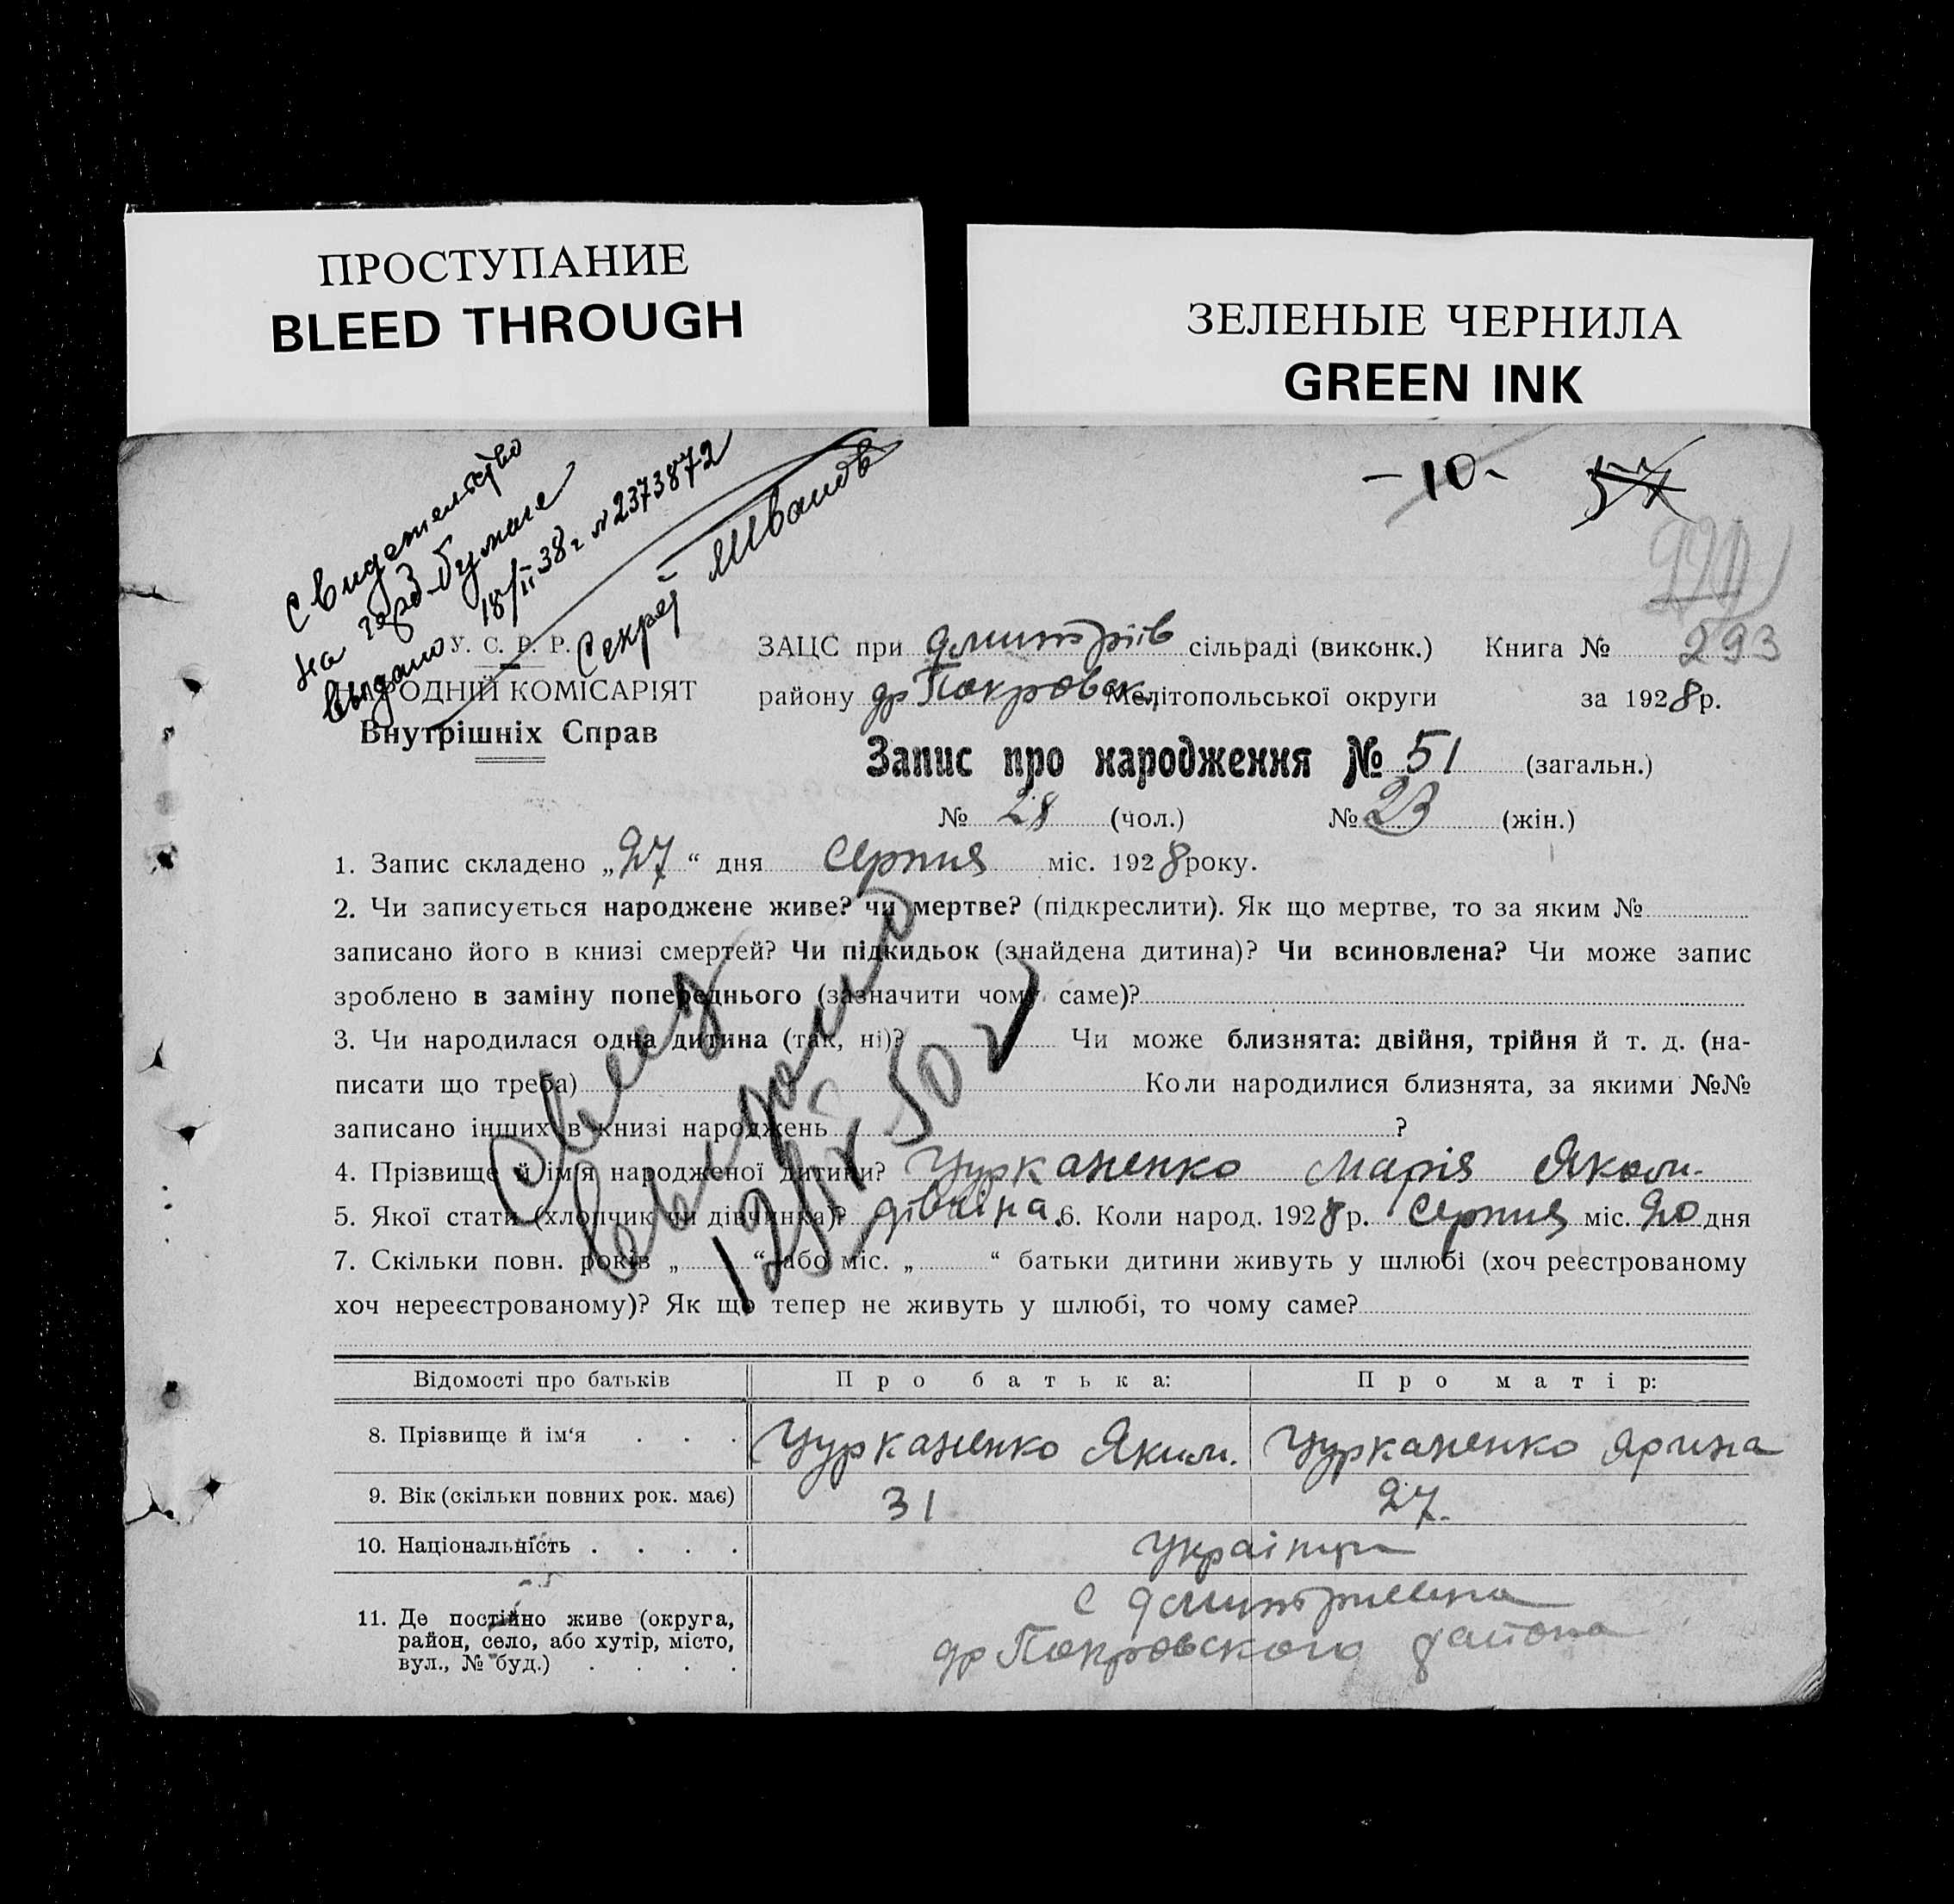 ПРОСТУПАНИЕ
BLEED THROUGH
ЗЕЛЕНЫЕ ЧЕРНИЛА
GREEN INK
Свидетельство
на герб. бумаге
выдано 18/II 38 г. № 2373872
Секрет
– 10 –
293
У. С. Р. Р.
РОДНІЙ КОМІСАРІЯТ
Внутрішніх Справ
ЗАЦС при Дмитрів сільраді (виконк.) Книга №
району др Покровськ Мелітопольської округи за 1928 р.
Запис про народження № 51 (загальн.)
№ 28 (чол.) № 23 (жін.)
1. Запис складено „27“ дня Серпня міс. 1928 року.
2. Чи записується народжене живе? чи мертве? (підкреслити). Як що мертве, то за яким №
записано його в книзі смертей? Чи підкидьок (знайдена дитина)? Чи всиновлена? Чи може запис
зроблено в заміну попереднього (зазначити чому саме)?
3. Чи народилася одна дитина (так, ні)? Чи може близнята: двійня, трійня й т. д. (на-
писати що треба) Коли народилися близнята, за якими №№
записано інших в книзі народжень ?
4. Прізвище й ім'я народженої дитини? Цурканенко Марія Яким.
5. Якої стати (хлопчик чи дівчинка)? дівчина. 6. Коли народ. 1928 р. Серпня міс. 20 дня
7. Скільки повн. років „ “ або міс. „ “ батьки дитини живуть у шлюбі (хоч реєстрованому
хоч нереєстрованому)? Як що тепер не живуть у шлюбі, то чому саме?
выдано
Відомості про батьків Про батька: Про матір:
8. Прізвище й ім'я . . . Цурканенко Яким. Цурканенко Ярина
9. Вік (скільки повних рок. має) 31 27.
10. Національність . . . . Українці
11. Де постійно живе (округа, район, село, або хутір, місто, вул., № буд.) . . . .
с Дмитрівка
др Покровского района